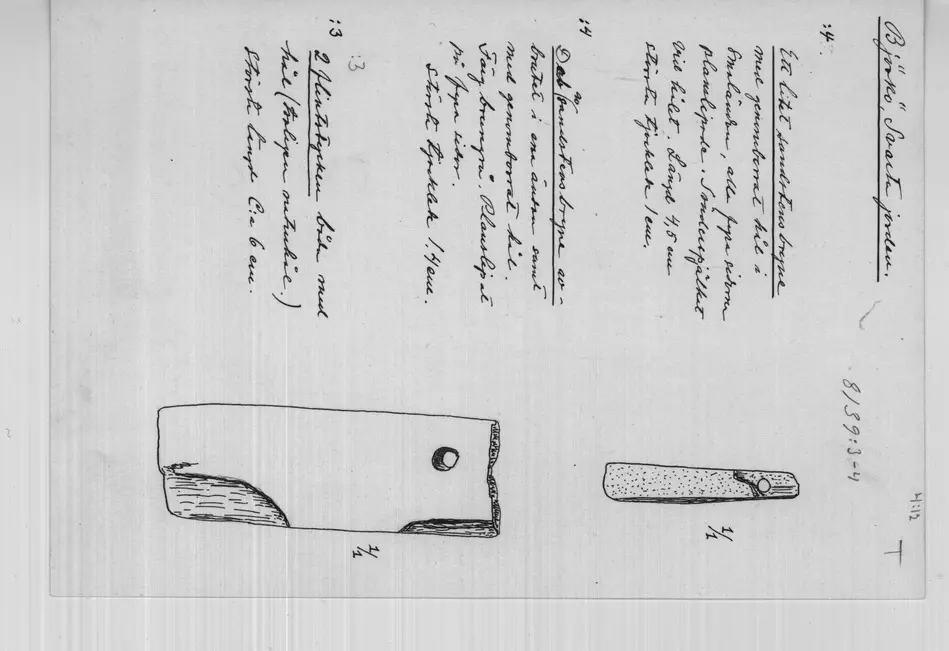 Björkö, Svarta jorden.
8139:3-4
4:12
T
:4.
Ett litet sandstensbryne
med genomborrat hål i
ena änden, alla fyra sidorna
planslipade. Sönderspjälkat
vid hålet. Längd 4,8 cm
största tjocklek 1 cm.
1/1
:4
Del av sandstensbryne av-
brutet i ena änden samt
med genomborrat hål.
Färg brungrå. Planslipat
på fyra sidor.
Största tjocklek 1.4 cm.
:3
:3
2 flintstycken båda med
hål (troligen naturhål.)
Största längd C:a 6 cm.
1/1